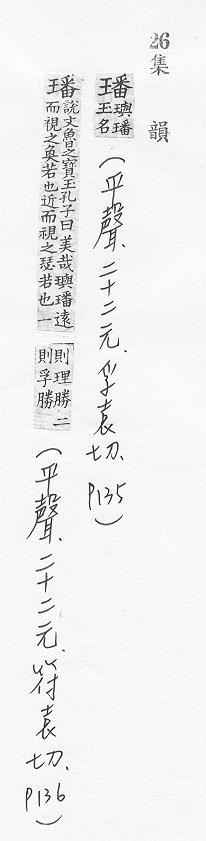 26集 韻
璠璵璠玉名(平聲、二十二元、孚袁切、P135)
璠說文魯之寶玉孔子曰美哉璵璠遠而視之奐若也近而視之瑟若也一則理勝二則孚勝(平聲、二十二元、符袁切、P136)